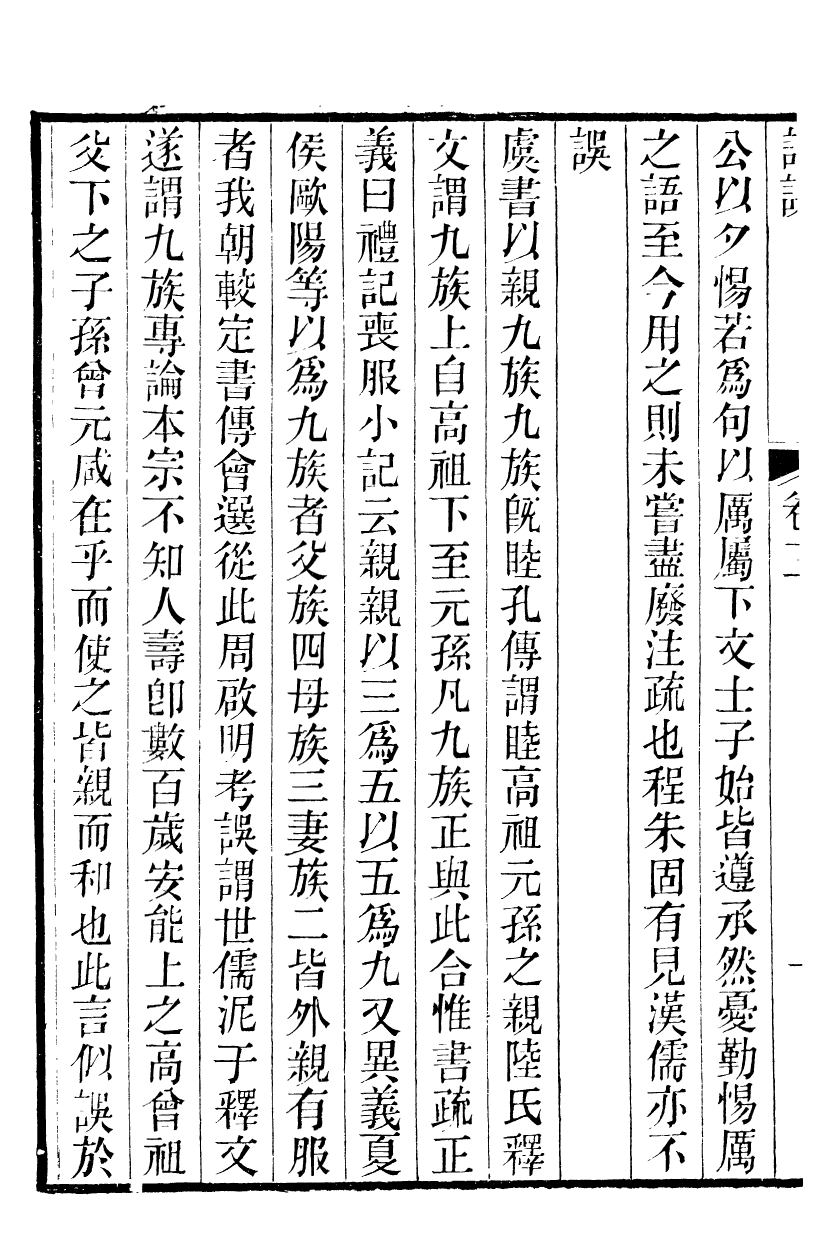 卷二
一
公以夕惕若爲句以厲屬下文士子始皆遵承然憂勤惕厲
之語至今用之則未嘗盡廢注疏也程朱固有見漢儒亦不
誤
虞書以親九族九族旣睦孔傳謂睦高祖元孫之親陸氏釋
文謂九族上自高祖下至元孫凡九族正與此合惟書疏正
義曰禮記喪服小記云親親以三爲五以五爲九又異義夏
侯歐陽等以爲九族者父族四母族三妻族二皆外親有服
者我朝較定書傳會選從此周啟明考誤謂世儒泥于釋文
遂謂九族專論本宗不知人壽卽數百歲安能上之高曾祖
父下之子孫曾元咸在乎而使之皆親而和也此言似誤於